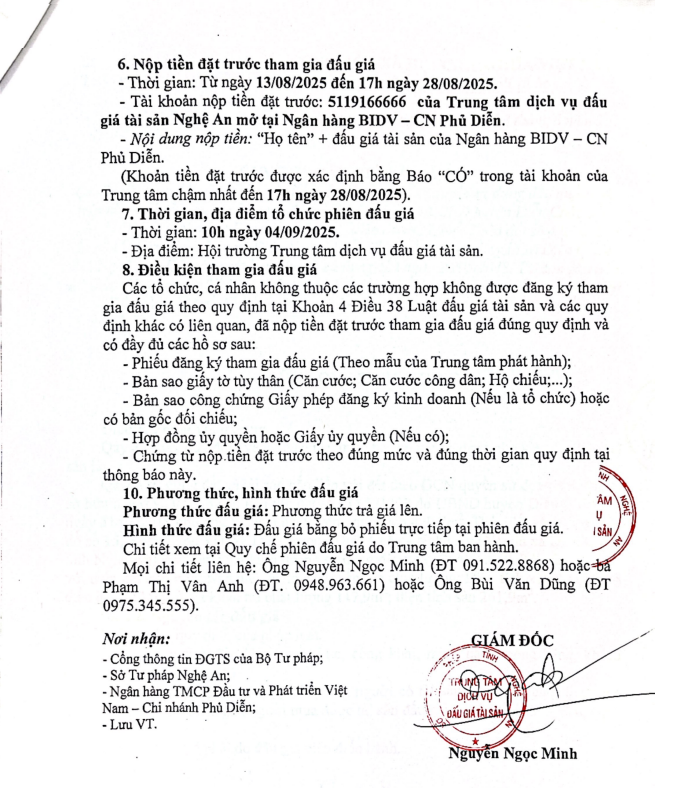 6. Nộp tiền đặt trước tham gia đấu giá
- Thời gian: Từ ngày 13/08/2025 đến 17h ngày 28/08/2025.
- Tài khoản nộp tiền đặt trước: 5119166666 của Trung tâm dịch vụ đấu
giá tài sản Nghệ An mở tại Ngân hàng BIDV – CN Phủ Diễn.
- Nội dung nộp tiền: “Họ tên” + đấu giá tài sản của Ngân hàng BIDV – CN
Phủ Diễn.
(Khoản tiền đặt trước được xác định bằng Báo “CÓ” trong tài khoản của
Trung tâm chậm nhất đến 17h ngày 28/08/2025).
7. Thời gian, địa điểm tổ chức phiên đấu giá
- Thời gian: 10h ngày 04/09/2025.
- Địa điểm: Hội trường Trung tâm dịch vụ đấu giá tài sản.
8. Điều kiện tham gia đấu giá
Các tổ chức, cá nhân không thuộc các trường hợp không được đăng ký tham
gia đấu giá theo quy định tại Khoản 4 Điều 38 Luật đấu giá tài sản và các quy
định khác có liên quan, đã nộp tiền đặt trước tham gia đấu giá đúng quy định và
có đầy đủ các hồ sơ sau:
- Phiếu đăng ký tham gia đấu giá (Theo mẫu của Trung tâm phát hành);
- Bản sao giấy tờ tùy thân (Căn cước; Căn cước công dân; Hộ chiếu;...);
- Bản sao công chứng Giấy phép đăng ký kinh doanh (Nếu là tổ chức) hoặc
có bản gốc đối chiếu;
- Hợp đồng ủy quyền hoặc Giấy ủy quyền (Nếu có);
- Chứng từ nộp tiền đặt trước theo đúng mức và đúng thời gian quy định tại
thông báo này.
10. Phương thức, hình thức đấu giá
Phương thức đấu giá: Phương thức trả giá lên.
Hình thức đấu giá: Đấu giá bằng bỏ phiếu trực tiếp tại phiên đấu giá.
Chi tiết xem tại Quy chế phiên đấu giá do Trung tâm ban hành.
Mọi chi tiết liên hệ: Ông Nguyễn Ngọc Minh (ĐT 091.522.8868) hoặc bà
Phạm Thị Vân Anh (ĐT. 0948.963.661) hoặc Ông Bùi Văn Dũng (ĐT
0975.345.555).
NH NGHỆ AN
ÂM
Ụ
I SẢN
Nơi nhận:
- Cổng thông tin ĐGTS của Bộ Tư pháp;
- Sở Tư pháp Nghệ An;
- Ngân hàng TMCP Đầu tư và Phát triển Việt
Nam – Chi nhánh Phủ Diễn;
- Lưu VT.
GIÁM ĐỐC
TỈNH NGHỆ AN
TRUNG TÂM
DỊCH VỤ
ĐẤU GIÁ TÀI SẢN
Nguyễn Ngọc Minh